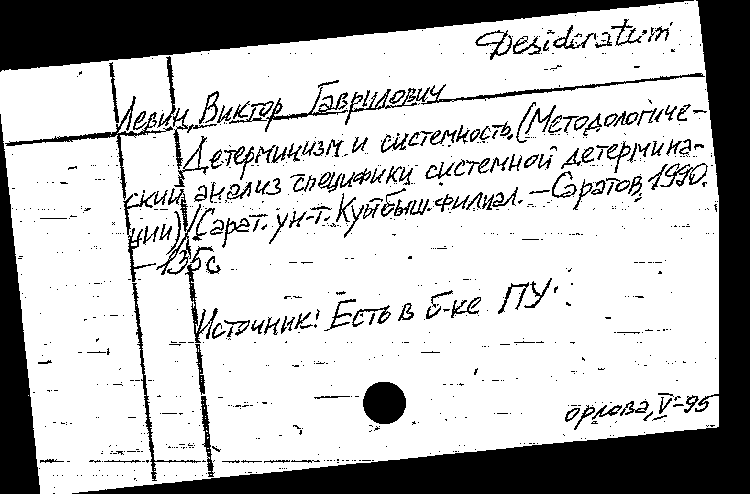 Desideratum
Левин, Виктор Гаврилович
Детерминизм и системность. (Методологиче-
ский анализ специфики системной детермина-
ции) / Сарат. ун-т. Куйбыш. филиал. — Саратов, 1990.
— 135 с.
Источник: Есть в б-ке ПУ.
орлова, V-95